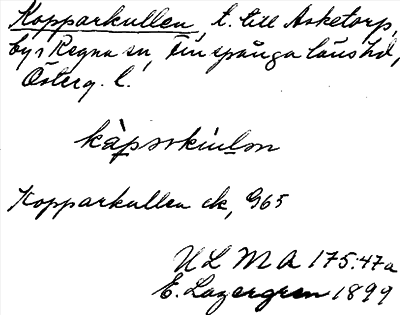 Kopparkullen, t. till Asketorp,
by i Regna sn, Finspånga läns hd,
Österg. l.
kàpsrkùlsn
Kopparkullen ek, G65
ULMA 175:47a
E. Lagergren 1899